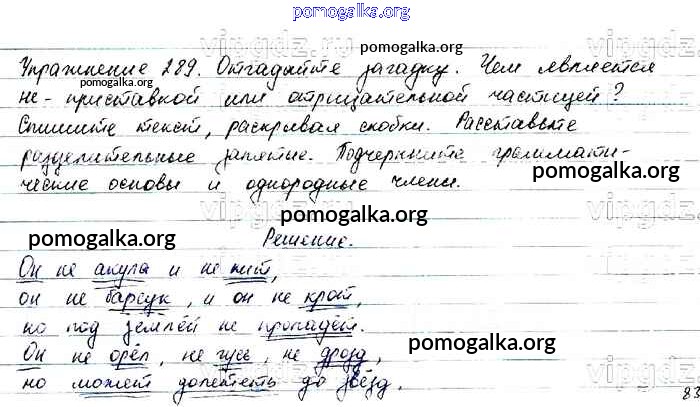 pomogalka.org
pomogalka.org
Упражнение 289. Отгадайте загадку. Чем является
не - приставкой или отрицательной частицей?
pomogalka.org
Спишите текст, раскрывая скобки. Расставьте
разделительные запятые. Подчеркните граммати-
ческие основы и однородные члены.
pomogalka.org
pomogalka.org
pomogalka.org
Решение.
Он не акула и не кит,
он не барсук, и он не крот,
но под землёй не пропадёт.
pomogalka.org
Он не орёл, не гусь, не дрозд,
но может долететь до звёзд.
83